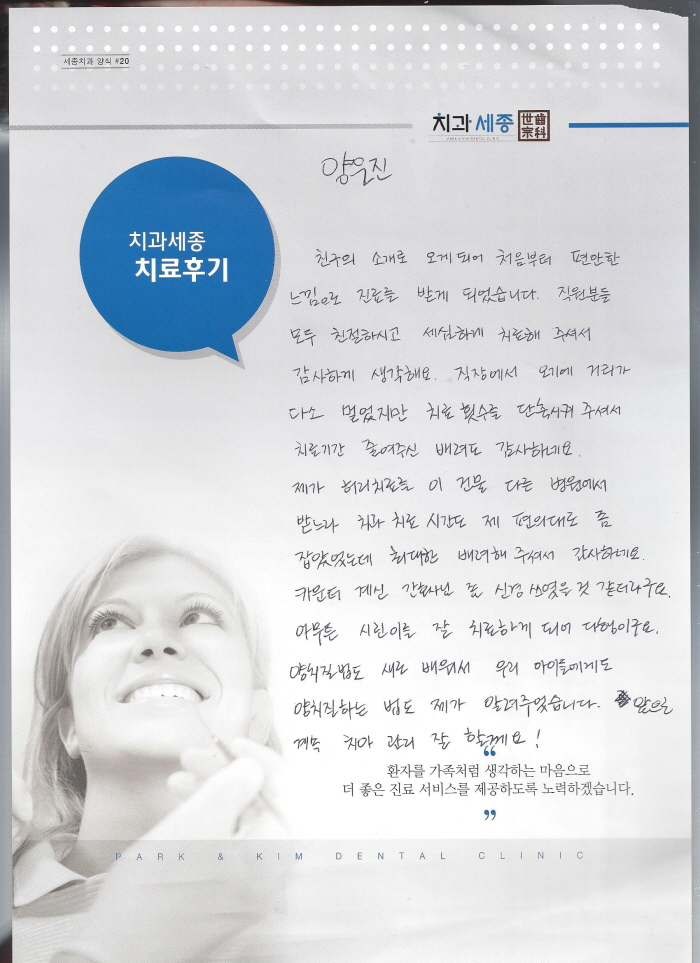 세종치과 양식 #20
치과세종 世宗齒科
양윤진
치과세종
치료후기
친구의 소개로 오게되어 처음부터 편안한
느낌으로 진료를 받게 되었습니다. 직원분들
모두 친절하시고 세심하게 치료해 주셔서
감사하게 생각해요. 직장에서 오기에 거리가
다소 멀었지만 치료 횟수를 단축시켜 주셔서
치료기간 줄여주신 배려도 감사하네요.
제가 허리치료를 이 건물 다른 병원에서
받느라 치과 치료 시간도 제 편의대로 좀
잡았었는데 최대한 배려해 주셔서 감사하네요.
카운터 계신 간호사님 좀 신경 쓰였을 것 같더라구요.
아무튼 시린이를 잘 치료하게 되어 다행이구요.
양치질법도 새로 배워서 우리 아이들에게도
양치질하는 법도 제가 알려주었습니다. 앞으로
계속 치아 관리 잘 할께요!
“
환자를 가족처럼 생각하는 마음으로
더 좋은 진료 서비스를 제공하도록 노력하겠습니다.
”
PARK & KIM DENTAL CLINIC